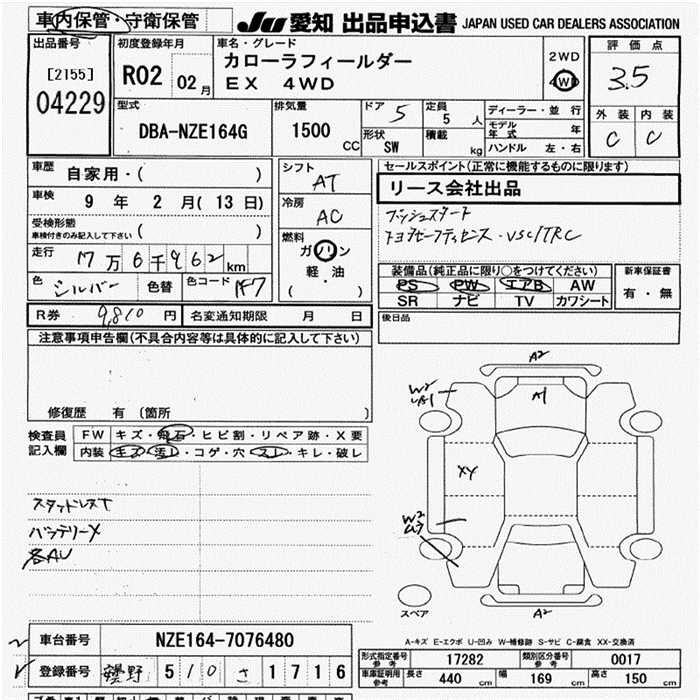 車内保管・守衛保管
JU 愛知 出品申込書 JAPAN USED CAR DEALERS ASSOCIATION
出品番号
[2155]
04229
初度登録年月
R02 02月
車名・グレード
カローラフィールダー
EX 4WD
2WD
4WD
評価点
3.5
外装 内装
C C
型式
DBA-NZE164G
排気量
1500 CC
ドア 5
形状 SW
定員 5 人
積載 kg
ディーラー・並行
モデル年式 年
ハンドル 左・右
車歴 自家用・( )
車検 9年 2月(13日)
受検形態
車検付きのみ記入して下さい ( )
走行 17万6千962km
色 シルバー 色替 色コード 1F7
シフト AT
冷房 AC
燃料
ガソリン
軽・油
( )
セールスポイント(正常に機能するものに限ります)
リース会社出品
プッシュスタート
トヨタセーフティセンス・VSC/TRC
装備品(純正品に限り○をつけてください)
PS PW エアB AW
SR ナビ TV カワシート
新車保証書
有・無
R券 9,810円 名変通知期限 月 日
後日品
注意事項申告欄(不具合内容等は具体的に記入して下さい)
修復歴 有 〔箇所 〕
検査員記入欄
FW キズ・飛石・ヒビ割・リペア跡・X要
内装 キズ・汚レ・コゲ・穴・スレ・キレ・破レ
スタッドレスT
バッテリーX
各AU
A2
W2
A1
XY
W2
A2
スペア
A-キズ E-エクボ U-凹み W-補修跡 S-サビ C-腐食 XX-交換済
車台番号 NZE164-7076480
登録番号 510 さ 1716
型式指定番号参考 17282 類別区分番号参考 0017
車庫証明用参考 長さ 440 cm 幅 169 cm 高さ 150 cm